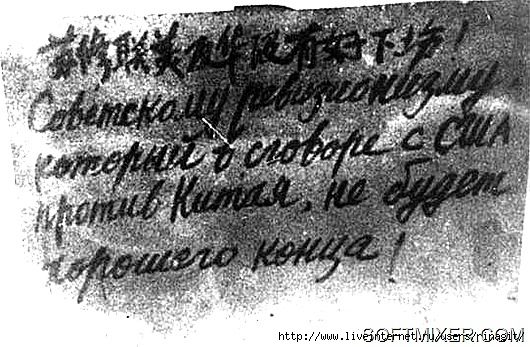 苏修联美反华没有好下场!
Советскому ревизионизму
который в сговоре с США
против Китая, не будет
хорошего конца!
SOFTMIXER.COM
http://www.liveinternet.ru/users/rinasit/